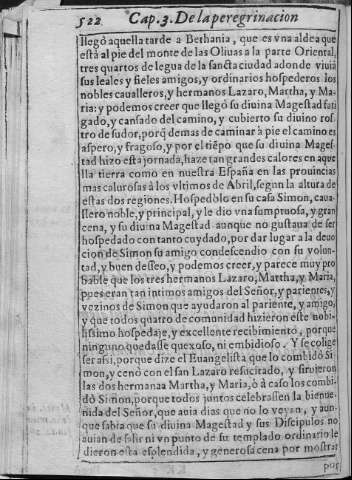 522 Cap. 3. De la peregrinacion
llegò aquella tarde a Bethania, que es vna aldea que
està al pie del monte de las Oliuas a la parte Oriental,
tres quartos de legua de la sancta ciudad adonde viuiã
sus leales y fieles amigos, y ordinarios hospederos los
nobles caualleros, y hermanos Lazaro, Martha, y Ma-
ria: y podemos creer que llegò su diuina Magestad fati
gado, y cansado del camino, y cubierto su diuino ros-
tro de sudor, porq̃ demas de caminar à pie el camino es
aspero, y fragoso, y por el tiẽpo que su diuina Mages
tad hizo esta jornada, haze tan grandes calores en aque
lla tierra como en nuestra España en las prouincias
mas calurosas à los vltimos de Abril, segun la altura de
estas dos regiones. Hospedòlo en su casa Simon, caua-
llero noble, y principal, y le dio vna sumptuosa, y gran
cena, y su diuina Magestad aunque no gustaua de ser
hospedado con tanto cuydado, por dar lugar a la deuo
cion de Simon su amigo condescendio con su volun-
tad, y buen desseo, y podemos creer, y parece muy pro
bable que los tres hermanos Lazaro, Martha, y Maria,
pues eran tan intimos amigos del Señor, y parientes, y
vezinos de Simon que ayudaron al pariente, y amigo,
y que todos quatro de comunidad hizieron este nobi-
lissimo hospedaje, y excellente recibimiento, porque
ninguno quedasse quexoso, ni embidioso. Y se colige
ser assi, porque dize el Euangelista que lo combidò Si
mon, y cenò con el san Lazaro resucitado, y siruieron
las dos hermanas Martha, y Maria, ò à caso los combi-
dò Simon, porque todos juntos celebrassen la bienue-
nida del Señor, que auia dias que no lo veyan, y aun-
que sabia que su diuina Magestad y sus Discipulos no
auian de salir ni vn punto de su templado ordinario le
dieron esta esplendida, y generosa cena por mostrar
por